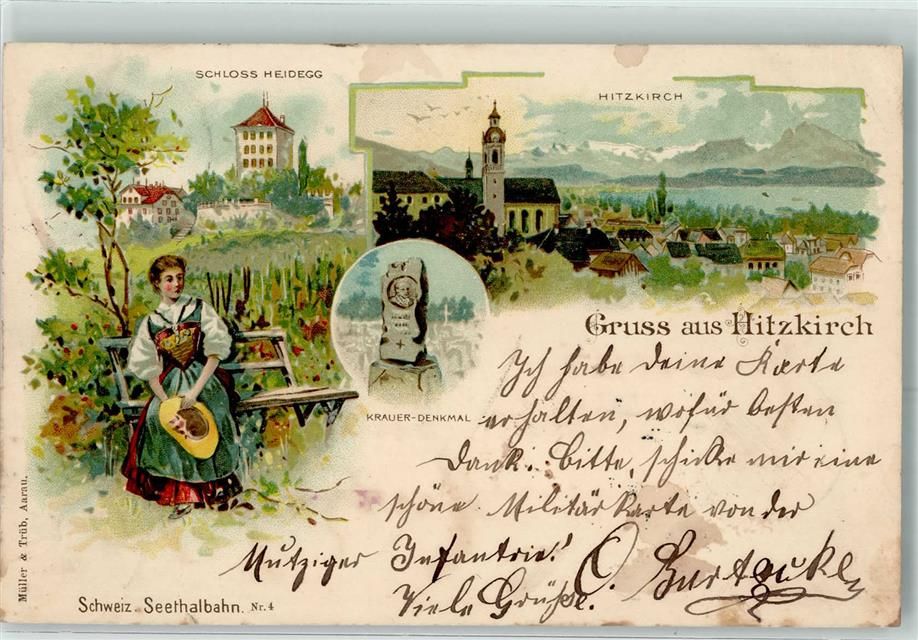 SCHLOSS HEIDEGG
HITZKIRCH
KRAUER-DENKMAL
Gruss aus Hitzkirch
Ich habe deine Karte
erhalten, wofür besten
Dank. Bitte, schicke mir eine
schöne Militärkarte von der
Mutziger Infantrie!
Viele Grüße.
Schweiz. Seethalbahn. Nr. 4
Müller & Trüb, Aarau.